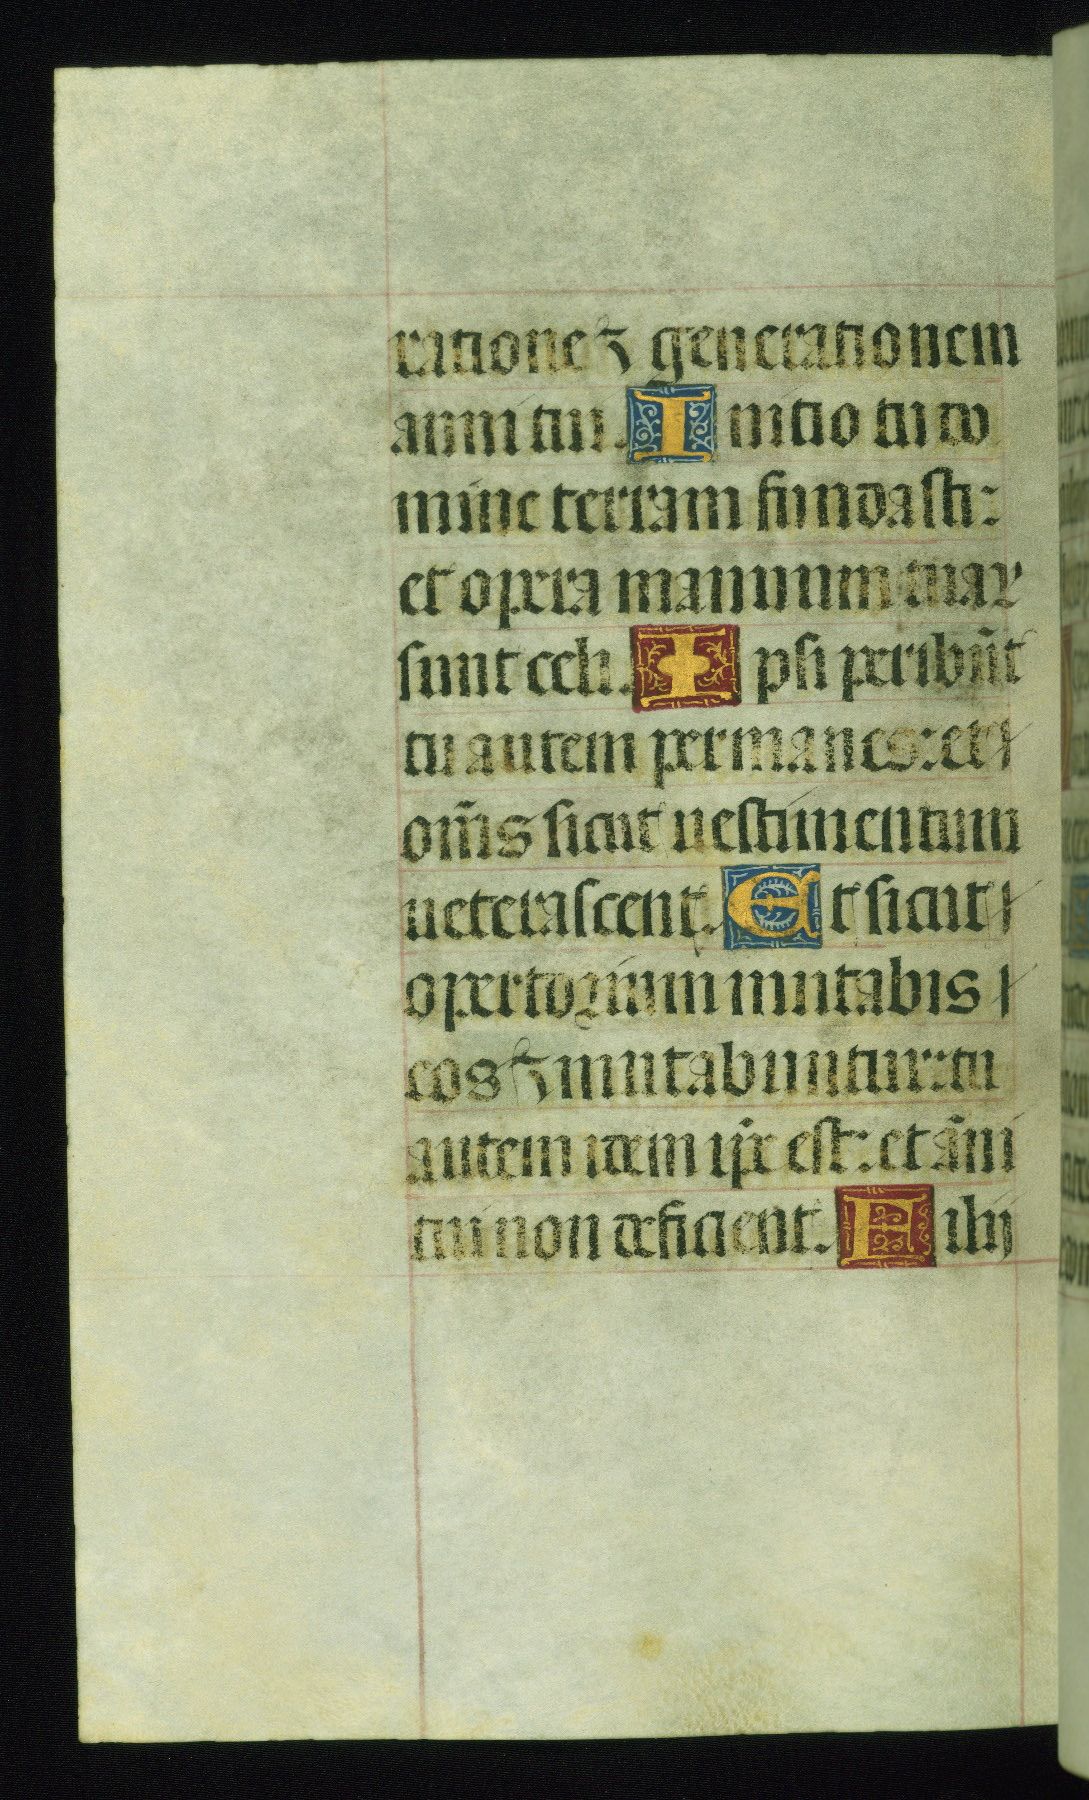 ratione ⁊ generationem
anni tui. Initio tu do
mine terram fundasti:
et opera manuum tuaꝝ
sunt celi. Ipsi peribūt
tu autem permanes: et
om̄s sicut uestimentum
ueterascent. Et sicut
opertorium mutabis
eos ⁊ mutabuntur: tu
autem idem ip̄e est: et āni
tui non deficient. Filij